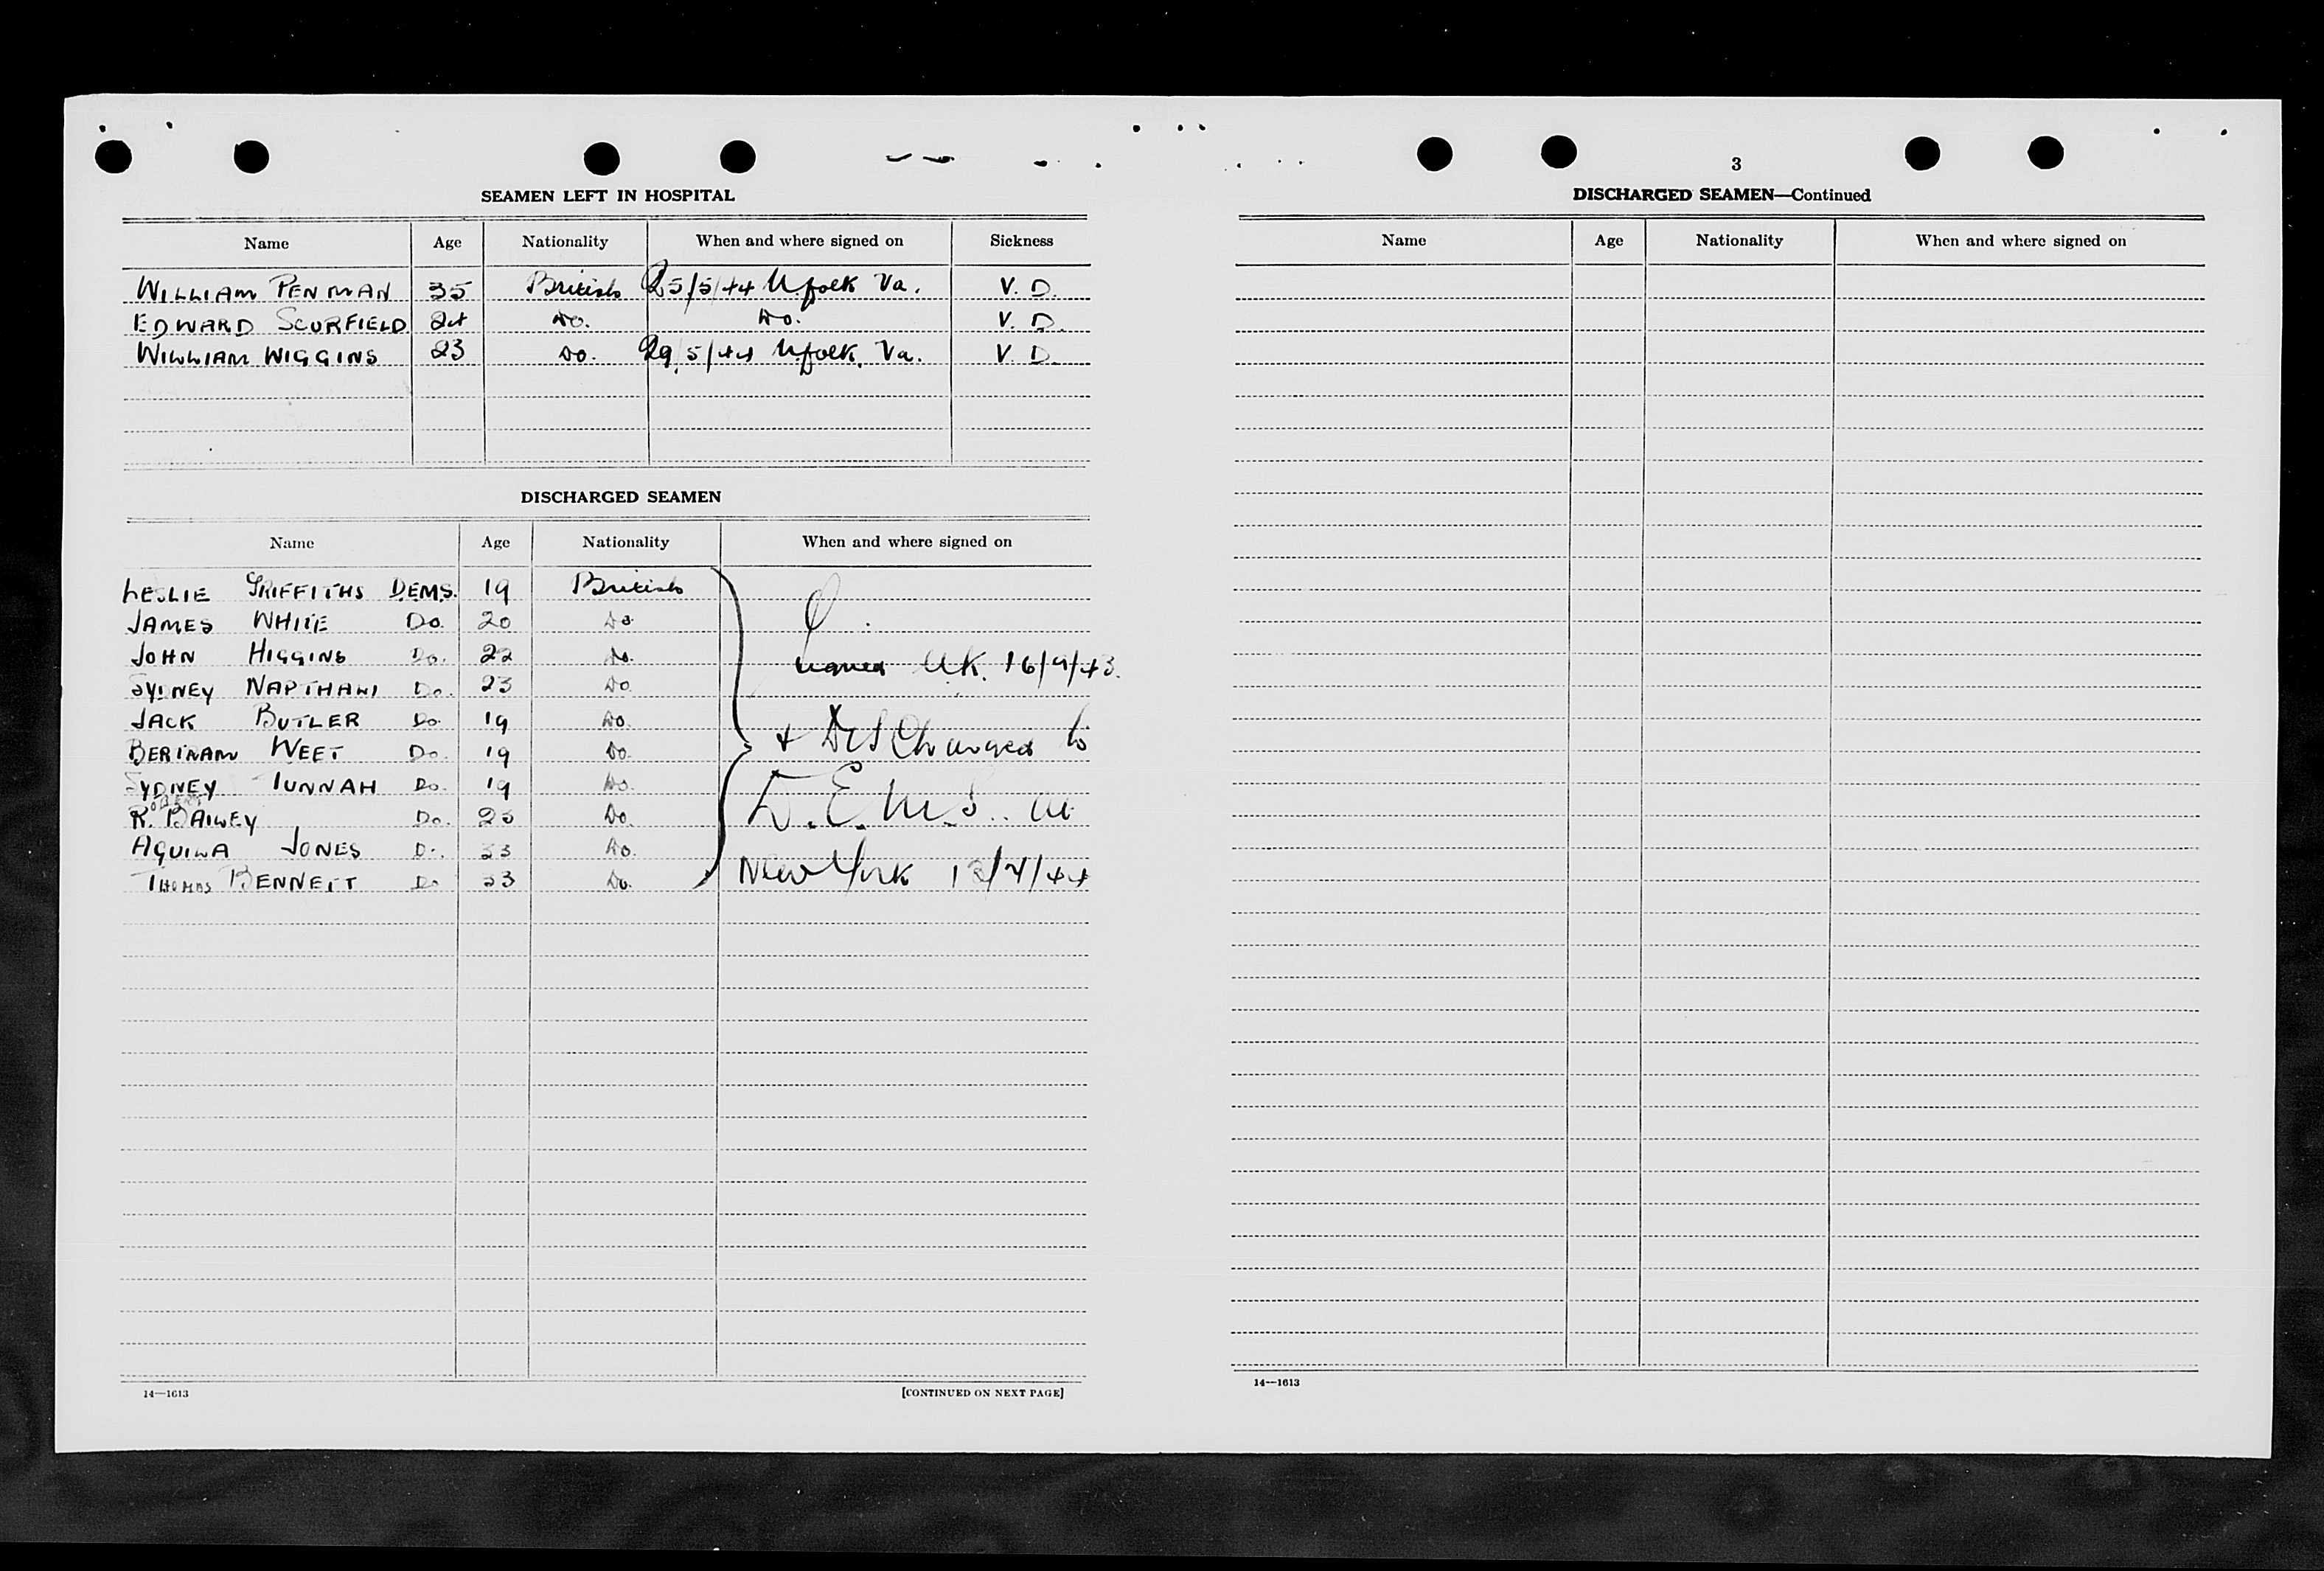 SEAMEN LEFT IN HOSPITAL
Name Age Nationality When and where signed on Sickness
WILLIAM PENMAN 35 British 25/5/44 N.folk Va. V. D.
EDWARD SCURFIELD 24 Do. Do. V. D.
WILLIAM WIGGINS 23 Do. 29/5/44 N.folk. Va. V. D.
DISCHARGED SEAMEN
Name Age Nationality When and where signed on
LESLIE GRIFFITHS D.E.M.S. 19 British
JAMES WHITE Do. 20 Do.
JOHN HIGGINS Do. 22 Do. U.K. 16/9/43.
SYDNEY NAPTHALI Do. 23 Do.
JACK BUTLER Do. 19 Do.
BERTRAM WEET Do. 19 Do. + Discharged to
SYDNEY TUNNAH Do. 19 Do.
R. BAILEY Do. Do. D.E.M.S. at
AQUILA JONES Do. 33 Do.
THOMAS BENNETT Do. 33 Do. New York
[CONTINUED ON NEXT PAGE]
14—1613
3
DISCHARGED SEAMEN—Continued
Name Age Nationality When and where signed on
14—1613